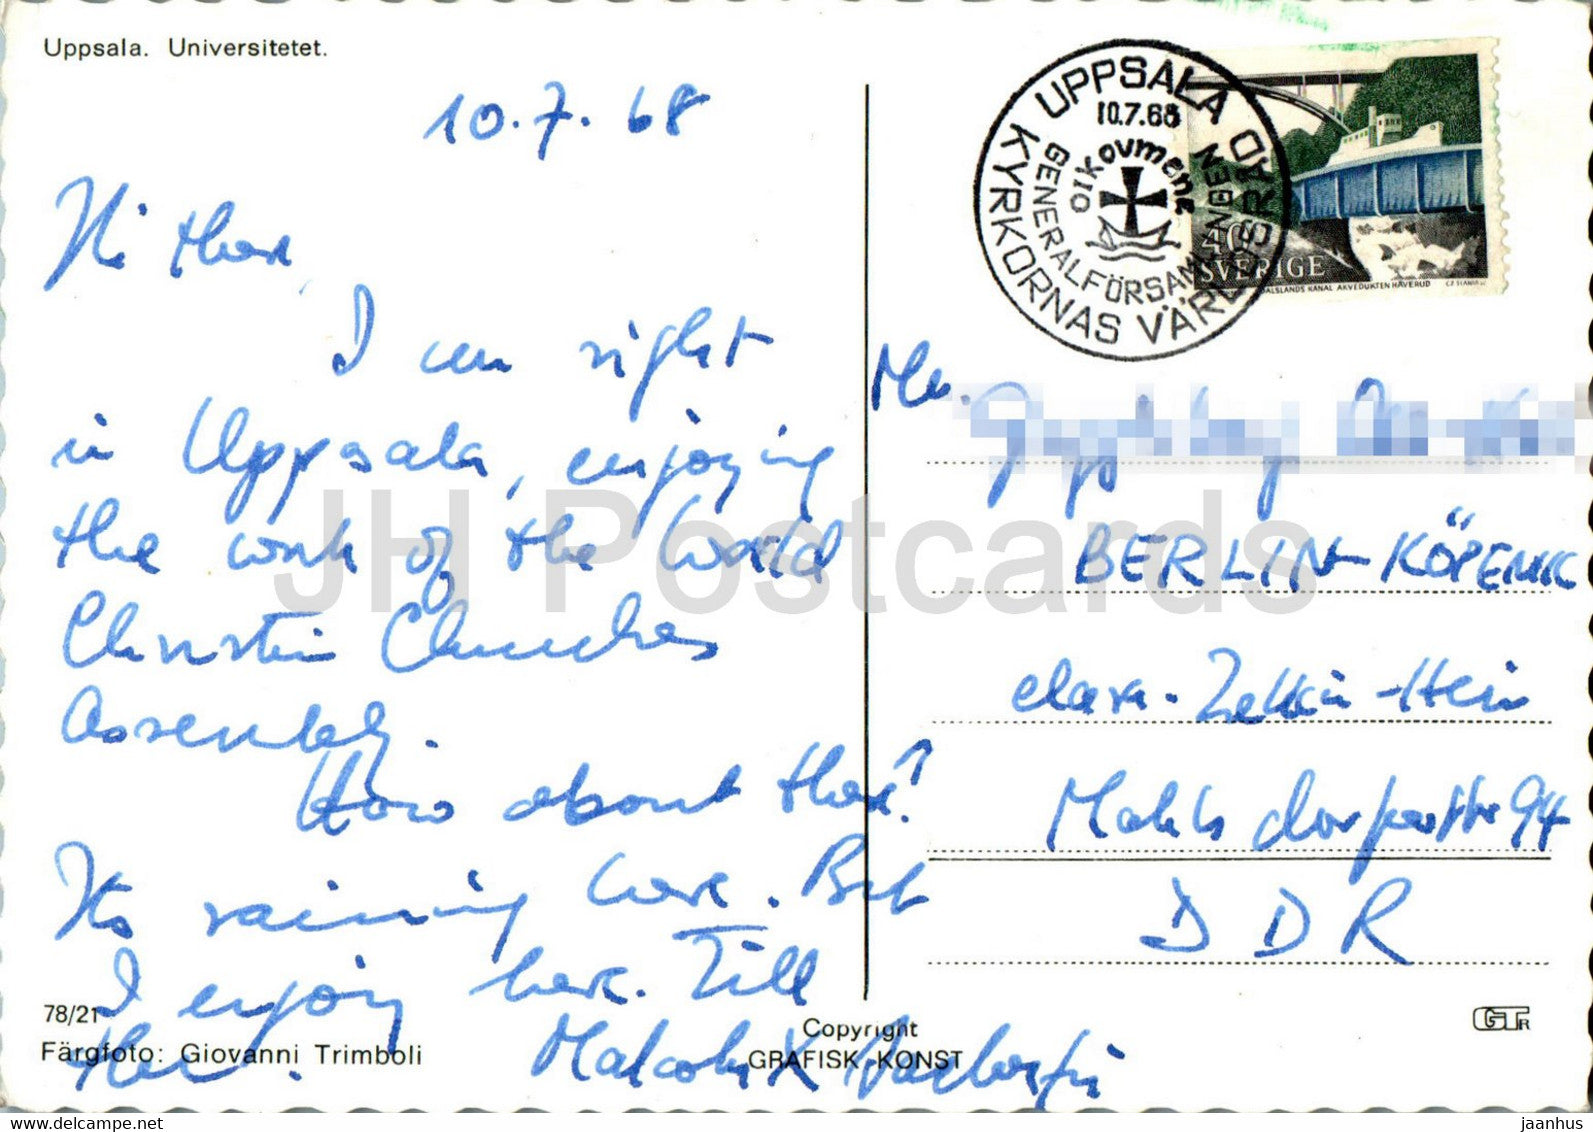 Uppsala. Universitetet.
10.7.68
Hi there,
I am right
in Uppsala, enjoying
the work of the World
Christian Churches
Assembly.
How about there?
It's raining here. But
I enjoy here. Till
then.
Malcolm X
78/21
Färgfoto: Giovanni Trimboli
Copyright
GRAFISK KONST
GTR
UPPSALA
10.7.68
OIKOVMENE
GENERALFÖRSAMLINGEN
KYRKORNAS VÄRLDSRÅD
40
SVERIGE
DALSLANDS KANAL AKVEDUKTEN HÅVERUD
Mr.
BERLIN-KÖPENIK
Clara-Zetkin-Heim
Mahlsdorferstr 94
DDR
JH Postcards
jaanhus